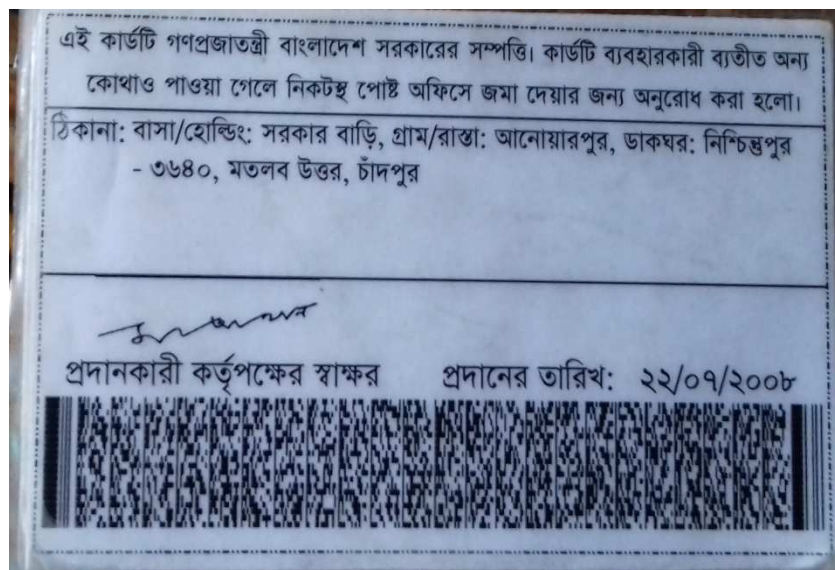 এই কার্ডটি গণপ্রজাতন্ত্রী বাংলাদেশ সরকারের সম্পত্তি। কার্ডটি ব্যবহারকারী ব্যতীত অন্য
কোথাও পাওয়া গেলে নিকটস্থ পোষ্ট অফিসে জমা দেয়ার জন্য অনুরোধ করা হলো।
ঠিকানা: বাসা/হোল্ডিং: সরকার বাড়ি, গ্রাম/রাস্তা: আনোয়ারপুর, ডাকঘর: নিশ্চিন্তপুর
- ৩৬৪০, মতলব উত্তর, চাঁদপুর
প্রদানকারী কর্তৃপক্ষের স্বাক্ষর প্রদানের তারিখ: ২২/০৭/২০০৮